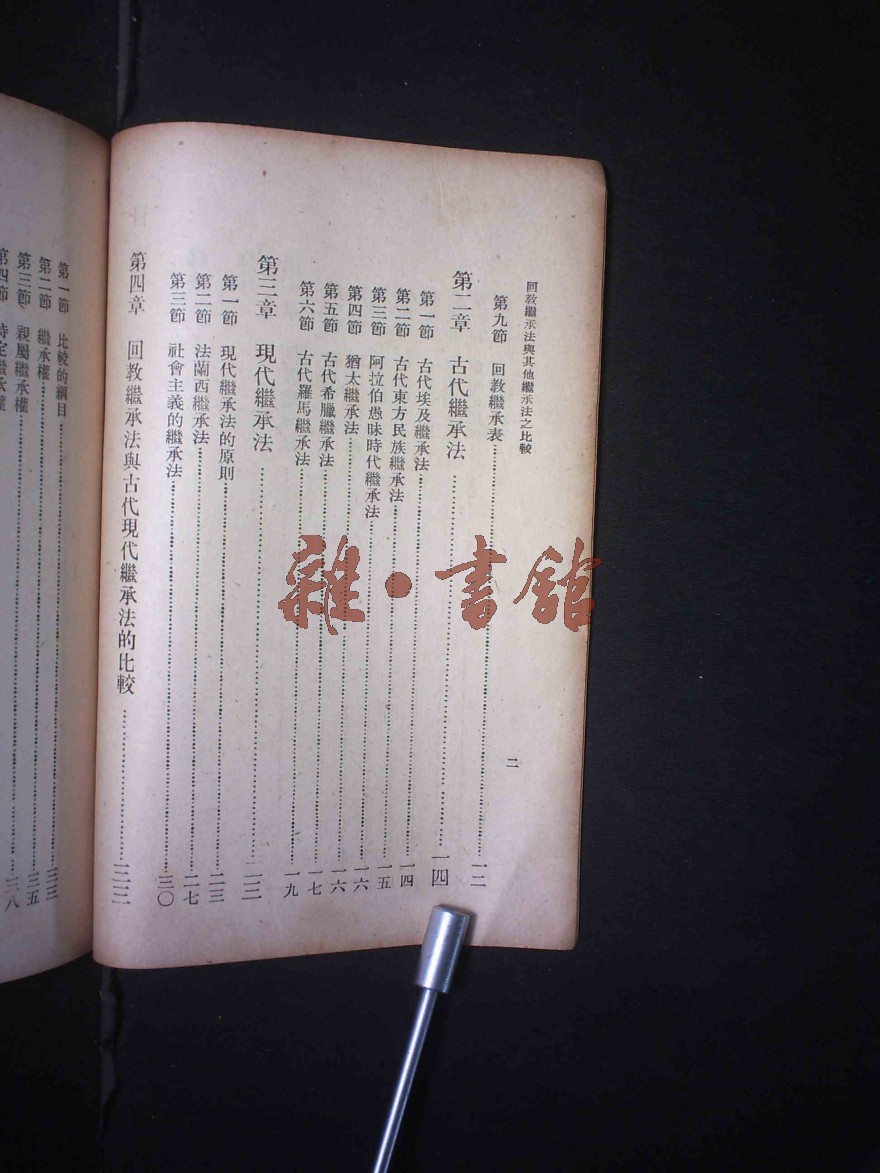 回教繼承法與其他繼承法之比較
二
第九節 回教繼承表 一二
第二章 古代繼承法 一四
第一節 古代埃及繼承法
第二節 古代東方民族繼承法 一四
第三節 阿拉伯愚昧時代繼承法 一五
第四節 猶太繼承法 一六
第五節 古代希臘繼承法 一六
第六節 古代羅馬繼承法 一七
一九
第三章 現代繼承法 二三
第一節 現代繼承法的原則 二三
第二節 法蘭西繼承法 二七
第三節 社會主義的繼承法 三〇
第四章 回教繼承法與古代現代繼承法的比較 三三
第一節 比較的綱目 三三
第二節 繼承權 三五
第三節 親屬繼承權 三八
第四節
雜·書館